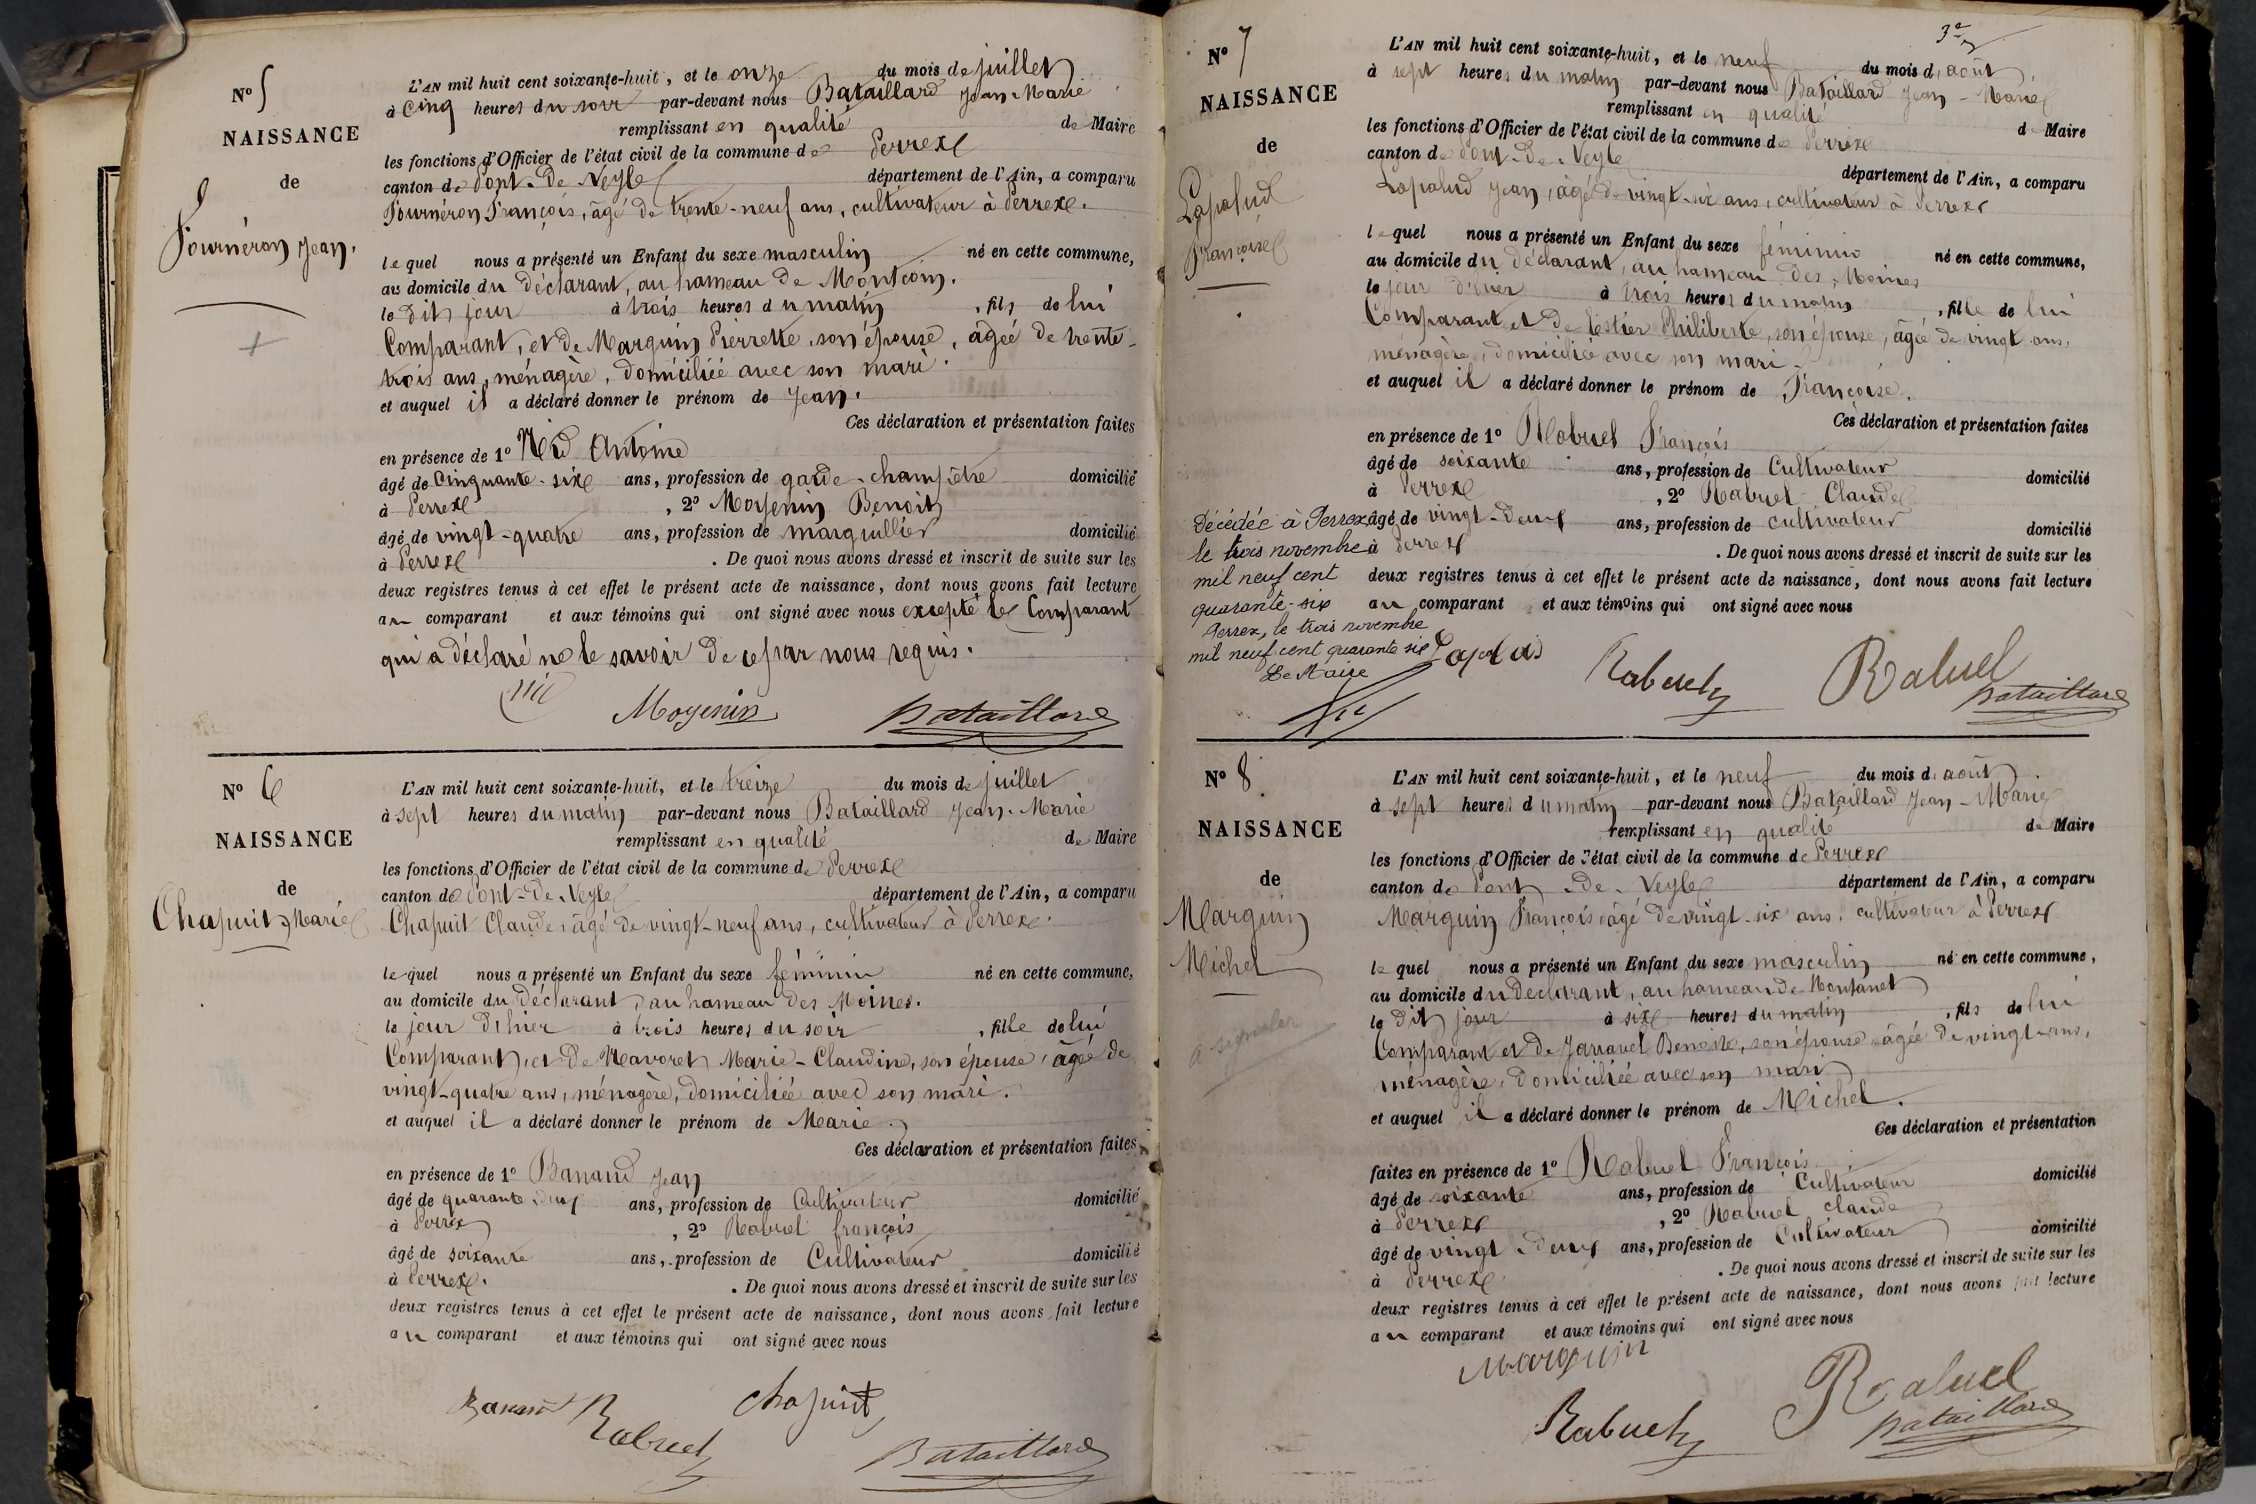 N° 5
NAISSANCE
de
Fournéron Jean.
L'AN mil huit cent soixante-huit, et le onze du mois de juillet
à cinq heures du soir par-devant nous Bataillard Jean-Marie
remplissant en qualité de Maire
les fonctions d'Officier de l'état civil de la commune de Perrex
canton de Pont-de-Veyle département de l'Ain, a comparu
Fournéron François, âgé de trente-neuf ans, cultivateur à Perrex.
lequel nous a présenté un Enfant du sexe masculin né en cette commune,
au domicile du déclarant, au hameau de Montcoin.
le dit jour à trois heures du matin, fils de lui
Comparant, et de Marguin Pierrette, son épouse, âgée de trente-
trois ans, ménagère, domiciliée avec son mari.
et auquel il a déclaré donner le prénom de Jean.
Ces déclaration et présentation faites
en présence de 1° Antoine
âgé de cinquante-six ans, profession de garde-champêtre domicilié
à Perrex, 2° Moyenin Benoit
âgé de vingt-quatre ans, profession de marguillier domicilié
à Perrex. De quoi nous avons dressé et inscrit de suite sur les
deux registres tenus à cet effet le présent acte de naissance, dont nous avons fait lecture
au comparant et aux témoins qui ont signé avec nous excepté le Comparant
qui a déclaré ne le savoir de ce par nous requis.
Moyenin Bataillard
N° 6
NAISSANCE
de
Chapuit Marie
L'AN mil huit cent soixante-huit, et le treize du mois de juillet
à sept heures du matin par-devant nous Bataillard Jean-Marie
remplissant en qualité de Maire
les fonctions d'Officier de l'état civil de la commune de Perrex
canton de Pont-de-Veyle département de l'Ain, a comparu
Chapuit Claude, âgé de vingt-neuf ans, cultivateur à Perrex.
lequel nous a présenté un Enfant du sexe féminin né en cette commune,
au domicile du déclarant, au hameau des Moines.
le jour d'hier à trois heures du soir, fille de lui
Comparant, et de Navoret Marie-Claudine, son épouse, âgée de
vingt-quatre ans, ménagère, domiciliée avec son mari.
et auquel il a déclaré donner le prénom de Marie.
Ces déclaration et présentation faites
en présence de 1° Banand Jean
âgé de quarante-deux ans, profession de Cultivateur domicilié
à Perrex, 2° Rabuel françois
âgé de soixante ans, profession de Cultivateur domicilié
à Perrex. De quoi nous avons dressé et inscrit de suite sur les
deux registres tenus à cet effet le présent acte de naissance, dont nous avons fait lecture
au comparant et aux témoins qui ont signé avec nous
Banand Rabuel chapuit
Bataillard
N° 7
NAISSANCE
de
Lapalud
Françoise
L'AN mil huit cent soixante-huit, et le neuf du mois d'août
à sept heures du matin par-devant nous Bataillard Jean-Marie
remplissant en qualité de Maire
les fonctions d'Officier de l'état civil de la commune de Perrex
canton de Pont-de-Veyle département de l'Ain, a comparu
Lapalud Jean, âgé de vingt-six ans, cultivateur à Perrex
lequel nous a présenté un Enfant du sexe féminin né en cette commune,
au domicile du déclarant, au hameau des Moines
le jour d'hier à trois heures du matin, fille de lui
Comparant et de Testier Philiberte, son épouse, âgée de vingt ans,
ménagère, domiciliée avec son mari.
et auquel il a déclaré donner le prénom de Françoise.
Ces déclaration et présentation faites
en présence de 1° Rabuel François
âgé de soixante ans, profession de Cultivateur domicilié
à Perrex, 2° Rabuel Claude
âgé de vingt-deux ans, profession de cultivateur domicilié
à Perrex. De quoi nous avons dressé et inscrit de suite sur les
deux registres tenus à cet effet le présent acte de naissance, dont nous avons fait lecture
au comparant et aux témoins qui ont signé avec nous
Décédée à Perrex
le trois novembre
mil neuf cent
quarante-six
Perrex, le trois novembre
mil neuf cent quarante six
Le Maire
Rabuel Rabuel
Bataillard
N° 8
NAISSANCE
de
Marguin
Michel
a signaler
L'AN mil huit cent soixante-huit, et le neuf du mois d'août
à sept heures du matin par-devant nous Bataillard Jean-Marie
remplissant en qualité de Maire
les fonctions d'Officier de l'état civil de la commune de Perrex
canton de Pont-de-Veyle département de l'Ain, a comparu
Marguin François âgé de vingt-six ans, cultivateur à Perrex
lequel nous a présenté un Enfant du sexe masculin né en cette commune,
au domicile du déclarant, au hameau de Montanet
le dit jour à six heures du matin, fils de lui
Comparant et de Benoite, son épouse âgée de vingt ans,
ménagère, domiciliée avec son mari
et auquel il a déclaré donner le prénom de Michel.
Ces déclaration et présentation
faites en présence de 1° Rabuel François
âgé de soixante ans, profession de Cultivateur domicilié
à Perrex, 2° Rabuel claude
âgé de vingt-deux ans, profession de Cultivateur domicilié
à Perrex. De quoi nous avons dressé et inscrit de suite sur les
deux registres tenus à cet effet le présent acte de naissance, dont nous avons fait lecture
au comparant et aux témoins qui ont signé avec nous
Marguin
Rabuel Rabuel
Bataillard